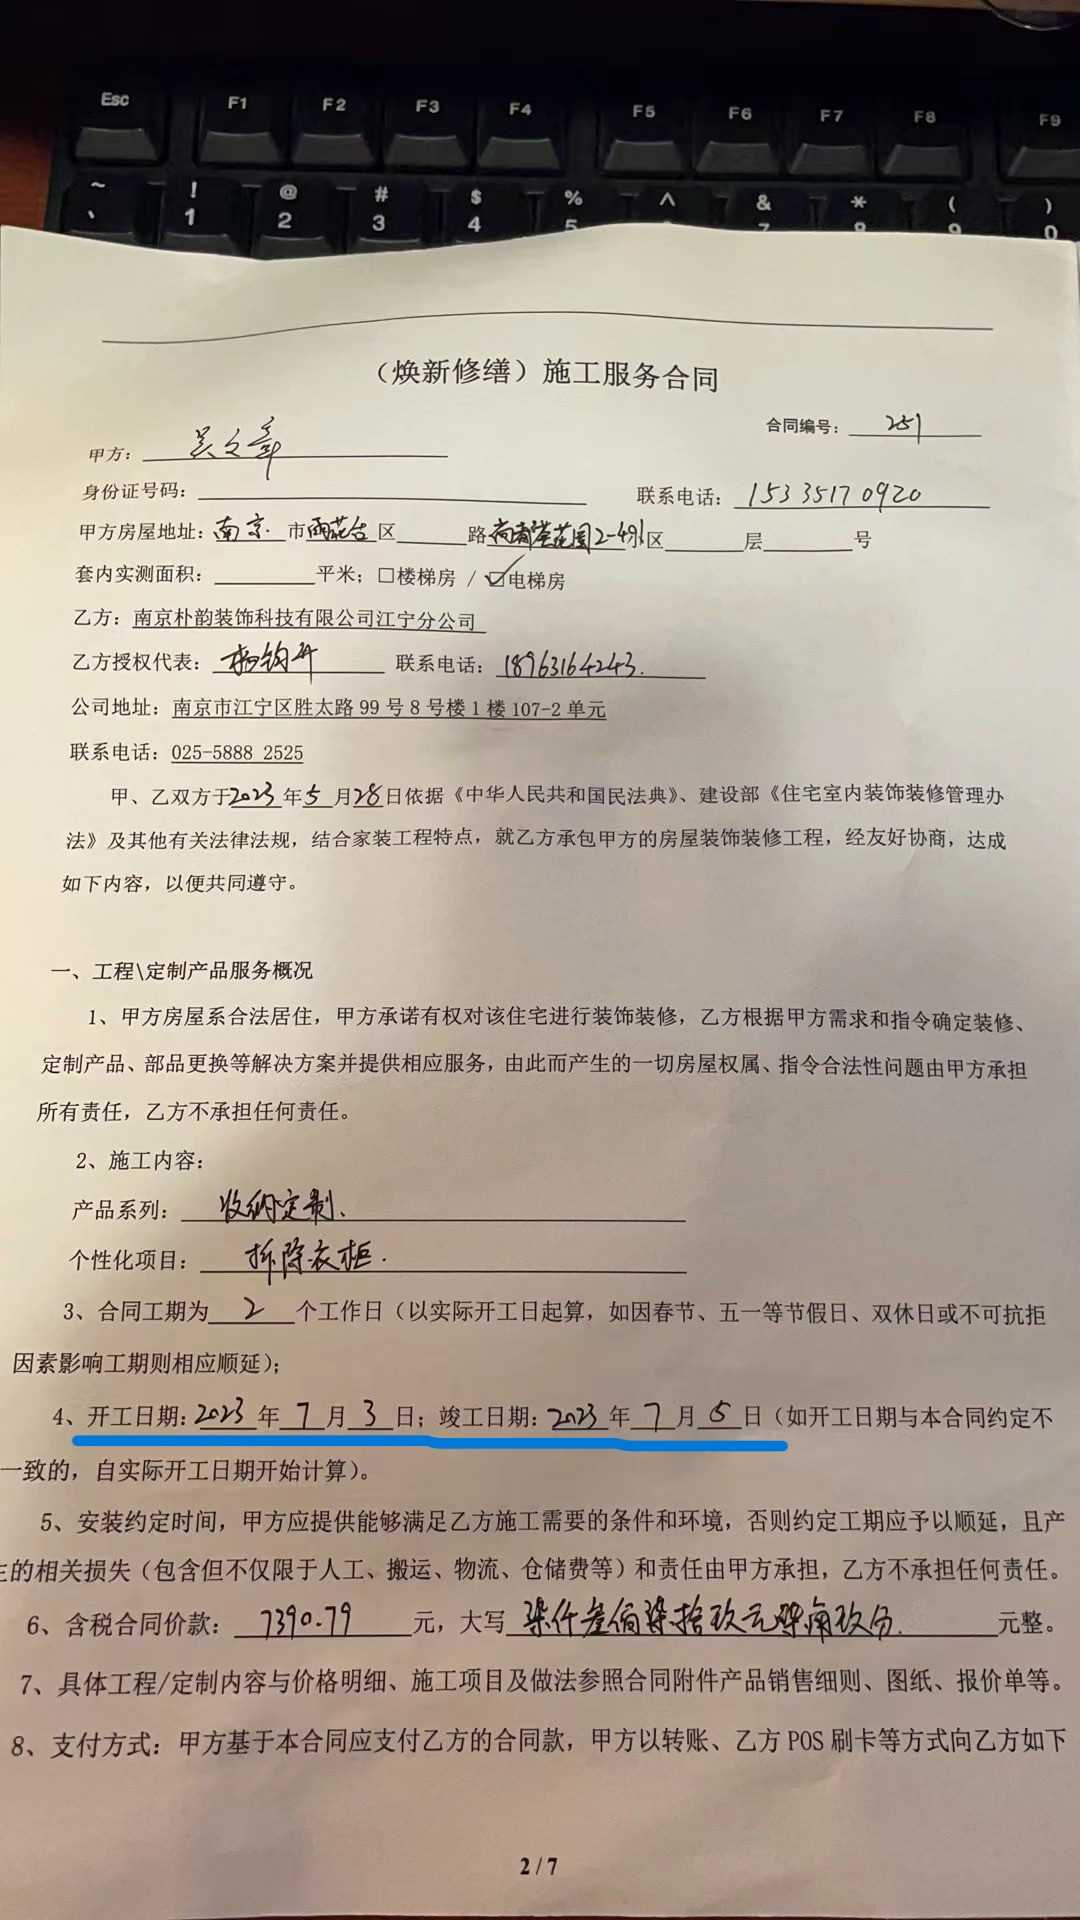 Esc F1 F2 F3 F4 F5 F6 F7 F8 F9
~ ! @ # $ % ^ & * ( )
、 1 2 3 4 5 7 8 9 0
（焕新修缮）施工服务合同
合同编号： 251
甲方： 吴文章
身份证号码： 联系电话： 15335170920
甲方房屋地址：南京 市 雨花台 区 路 花园2-491 区 层 号
套内实测面积： 平米；□楼梯房 / ☑电梯房
乙方：南京朴韵装饰科技有限公司江宁分公司
乙方授权代表： 联系电话：18963164243.
公司地址：南京市江宁区胜太路 99 号 8 号楼 1 楼 107-2 单元
联系电话：025-5888 2525
甲、乙双方于2023年5月28日依据《中华人民共和国民法典》、建设部《住宅室内装饰装修管理办
法》及其他有关法律法规，结合家装工程特点，就乙方承包甲方的房屋装饰装修工程，经友好协商，达成
如下内容，以便共同遵守。
一、工程\定制产品服务概况
1、甲方房屋系合法居住，甲方承诺有权对该住宅进行装饰装修，乙方根据甲方需求和指令确定装修、
定制产品、部品更换等解决方案并提供相应服务，由此而产生的一切房屋权属、指令合法性问题由甲方承担
所有责任，乙方不承担任何责任。
2、施工内容：
产品系列： 收纳定制、
个性化项目： 拆除衣柜.
3、合同工期为 2 个工作日（以实际开工日起算，如因春节、五一等节假日、双休日或不可抗拒
因素影响工期则相应顺延）；
4、开工日期：2023 年 7 月 3 日；竣工日期：2023 年 7 月 5 日（如开工日期与本合同约定不
一致的，自实际开工日期开始计算）。
5、安装约定时间，甲方应提供能够满足乙方施工需要的条件和环境，否则约定工期应予以顺延，且产
生的相关损失（包含但不仅限于人工、搬运、物流、仓储费等）和责任由甲方承担，乙方不承担任何责任。
6、含税合同价款： 7390.79 元，大写 柒仟叁佰柒拾玖元柒角玖分. 元整。
7、具体工程/定制内容与价格明细、施工项目及做法参照合同附件产品销售细则、图纸、报价单等。
8、支付方式：甲方基于本合同应支付乙方的合同款，甲方以转账、乙方 POS 刷卡等方式向乙方如下
2 / 7